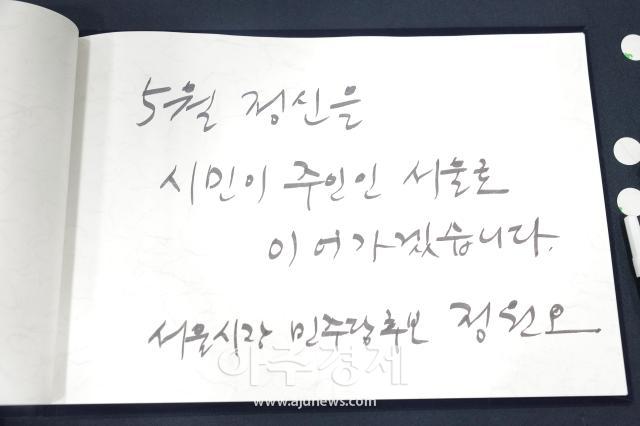 5월 정신을
시민이 주인인 서울로
이어가겠습니다.
서울시장 민주당후보 정원오
아주경제
www.ajunews.com